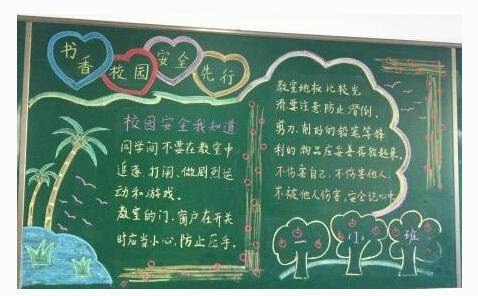 书香
校园
安全
先行
校园安全我知道
同学间不要在教室中
追逐、打闹、做剧烈运
动和游戏。
教室的门、窗户在开关
时应当小心,防止压手。
教室地板比较光
滑要注意防止滑倒。
剪刀、削好的铅笔等锋
利的物品应妥善存放起来。
不伤害自己,不伤害他人,
不被他人伤害,安全记心中
一(1)班